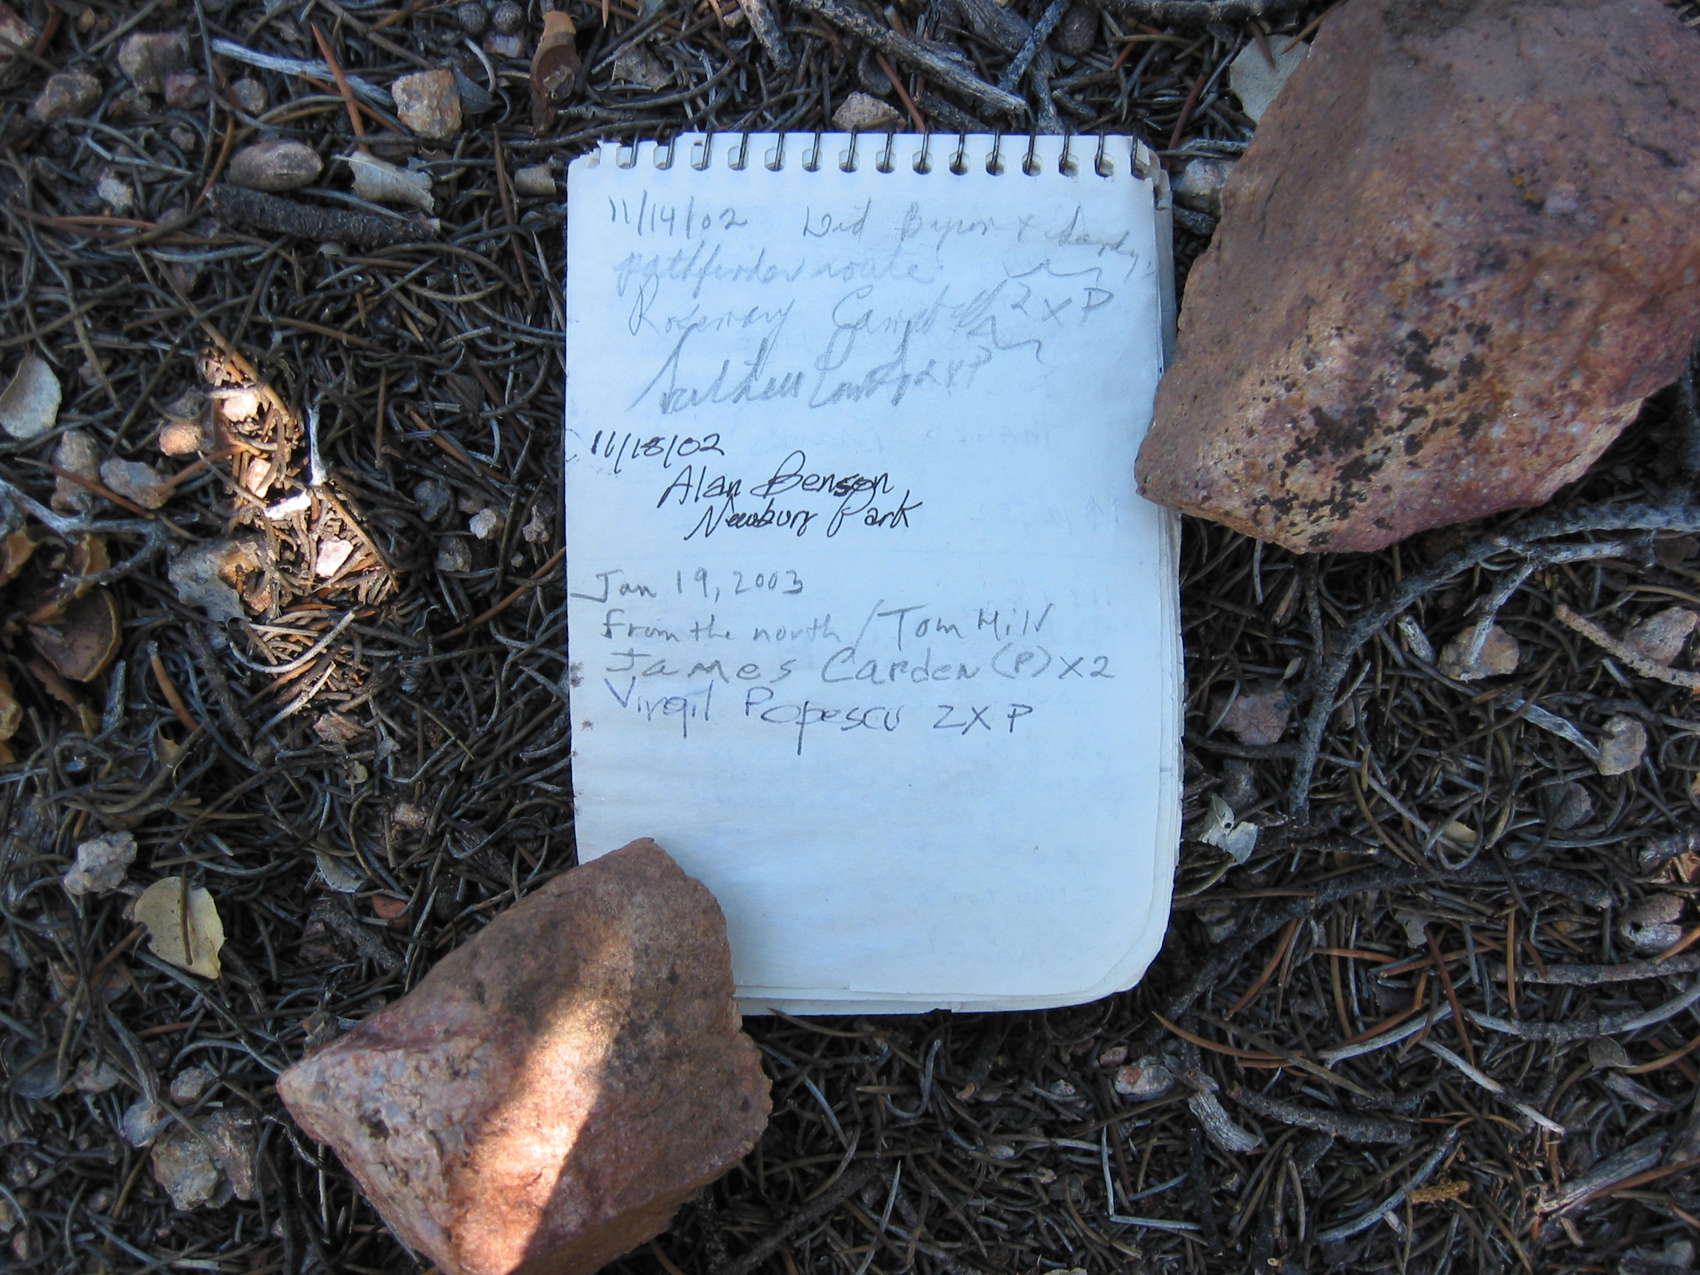 11/14/02 Did Byron & Sandy's
pathfinder route
Rosemary Campbell 2 x P
2xP
11/18/02
Alan Benson
Newbury Park
Jan 19, 2003
from the north / Tom Hill
James Carden (P) X2
Virgil Popescu 2XP